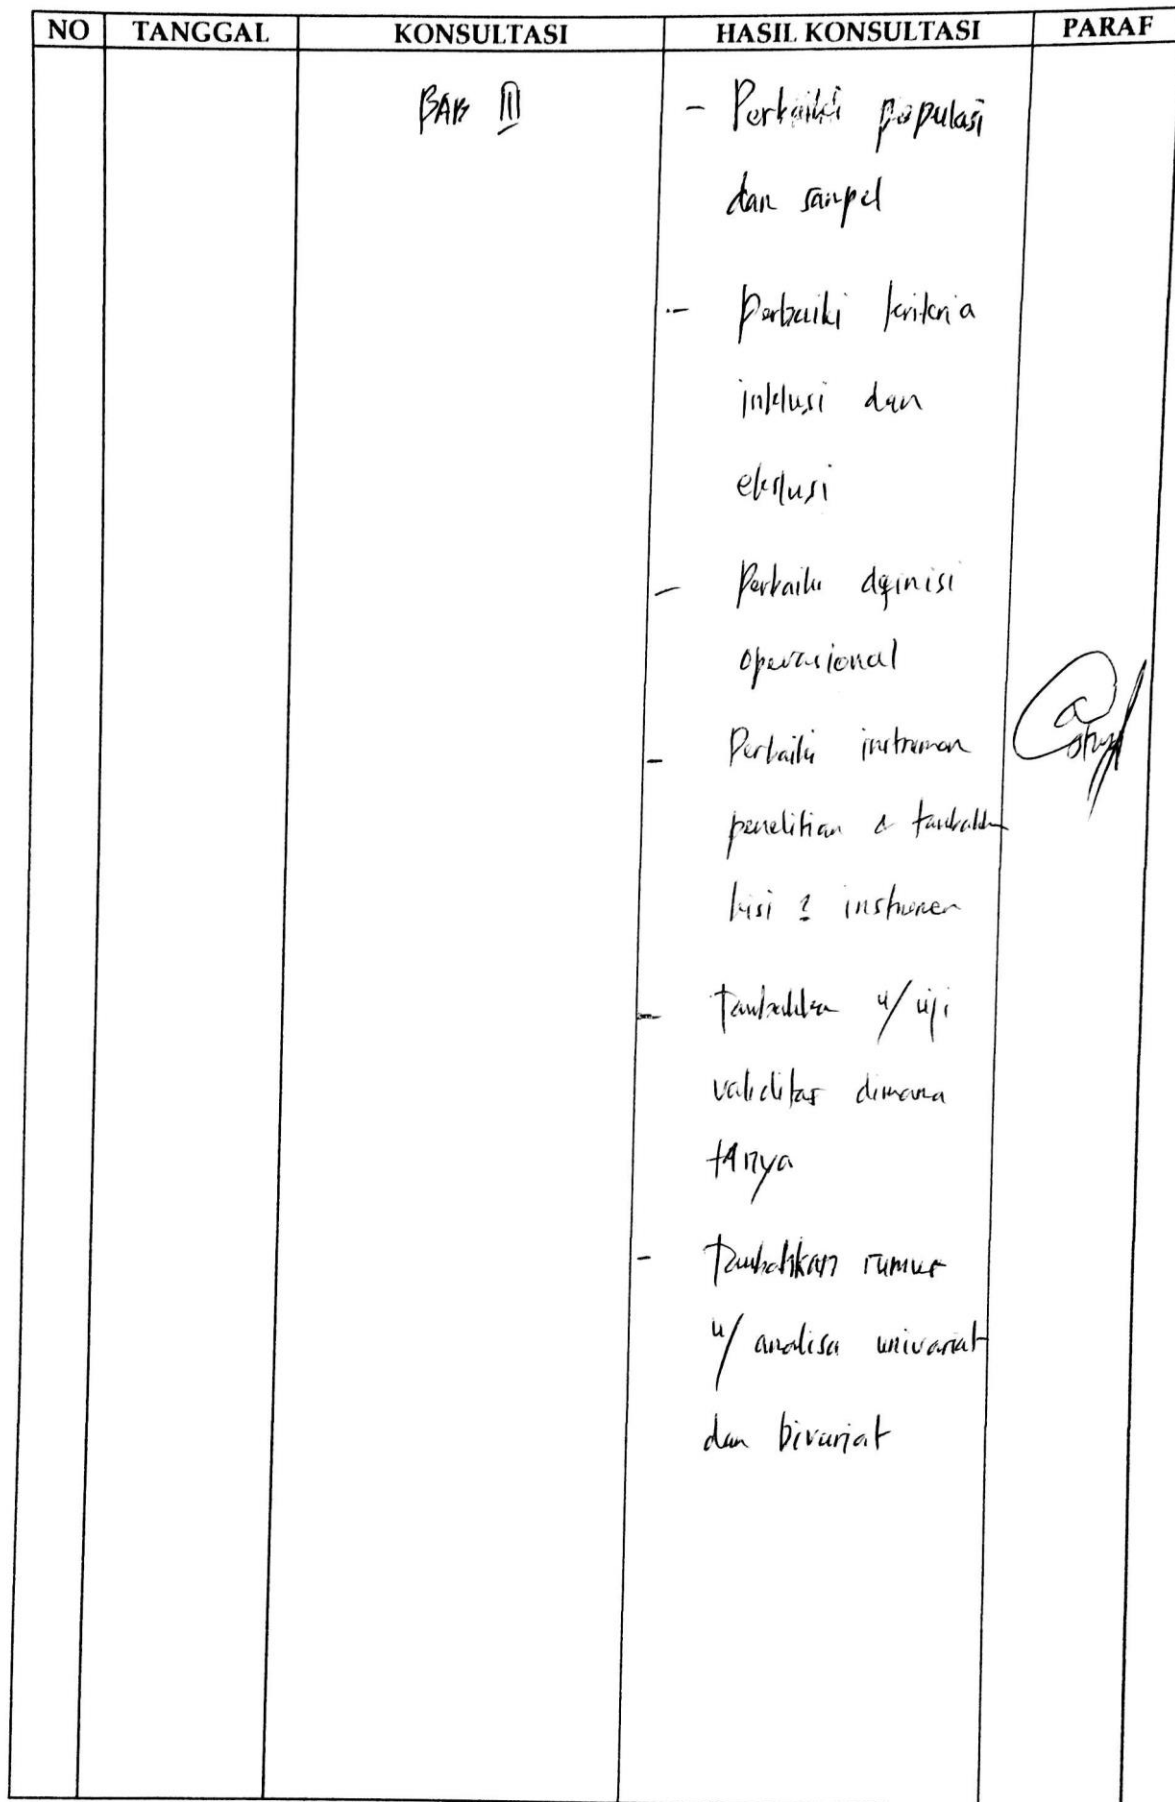 NO TANGGAL KONSULTASI HASIL KONSULTASI PARAF
BAB III - Perbaiki populasi
dan sampel
- Perbaiki kriteria
inklusi dan
ekslusi
- Perbaiki definisi
operasional
- Perbaiki instrumen
penelitian & tambahkan
kisi 2 instrumen
- Tambahkan u/ uji
validitas dimana
tanya
- Tambahkan rumus
u/ analisa univariat
dan bivariat